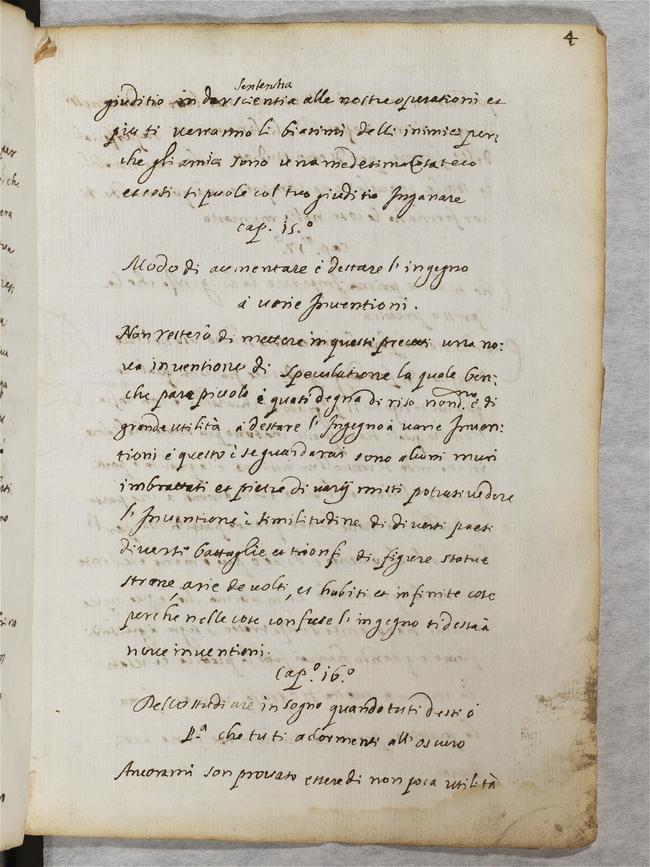 4
Sententia
giuditio in dar scientia alle nostre operationi et
piu ti verranno li biasimi delli inimici per:
che gli amici sono una medesima teco
et cosi ti puole col tuo giuditio Inganare
cap. 15.º
Modo di aumentare è destare l'ingegno
à varie Inventioni.
Non resterò di mettere in questi precetti una no:
va inventione di speculatione la quale ben:
che pare picciola è quasi degna di riso nond.no è di
grande utilità à destare l'Ingegno à varie Inven:
tioni è questo è se guardarai sono alcuni muri
imbrattati et pietre di varij misti potrai vedere
l'Inventione è similitudine di diversi paesi
diverse battaglie et trionfi di figure statue
strane, arie de volti, et habiti et infinite cose
perche nelle cose confuse l'ingegno si desta à
nove inventioni.
Cap.º 16.º
Dello studiare in sogno quando tu ti desti ò
p.ª che tu ti adormenti all'oscuro
Ancorami son provato essere di non poca utilità